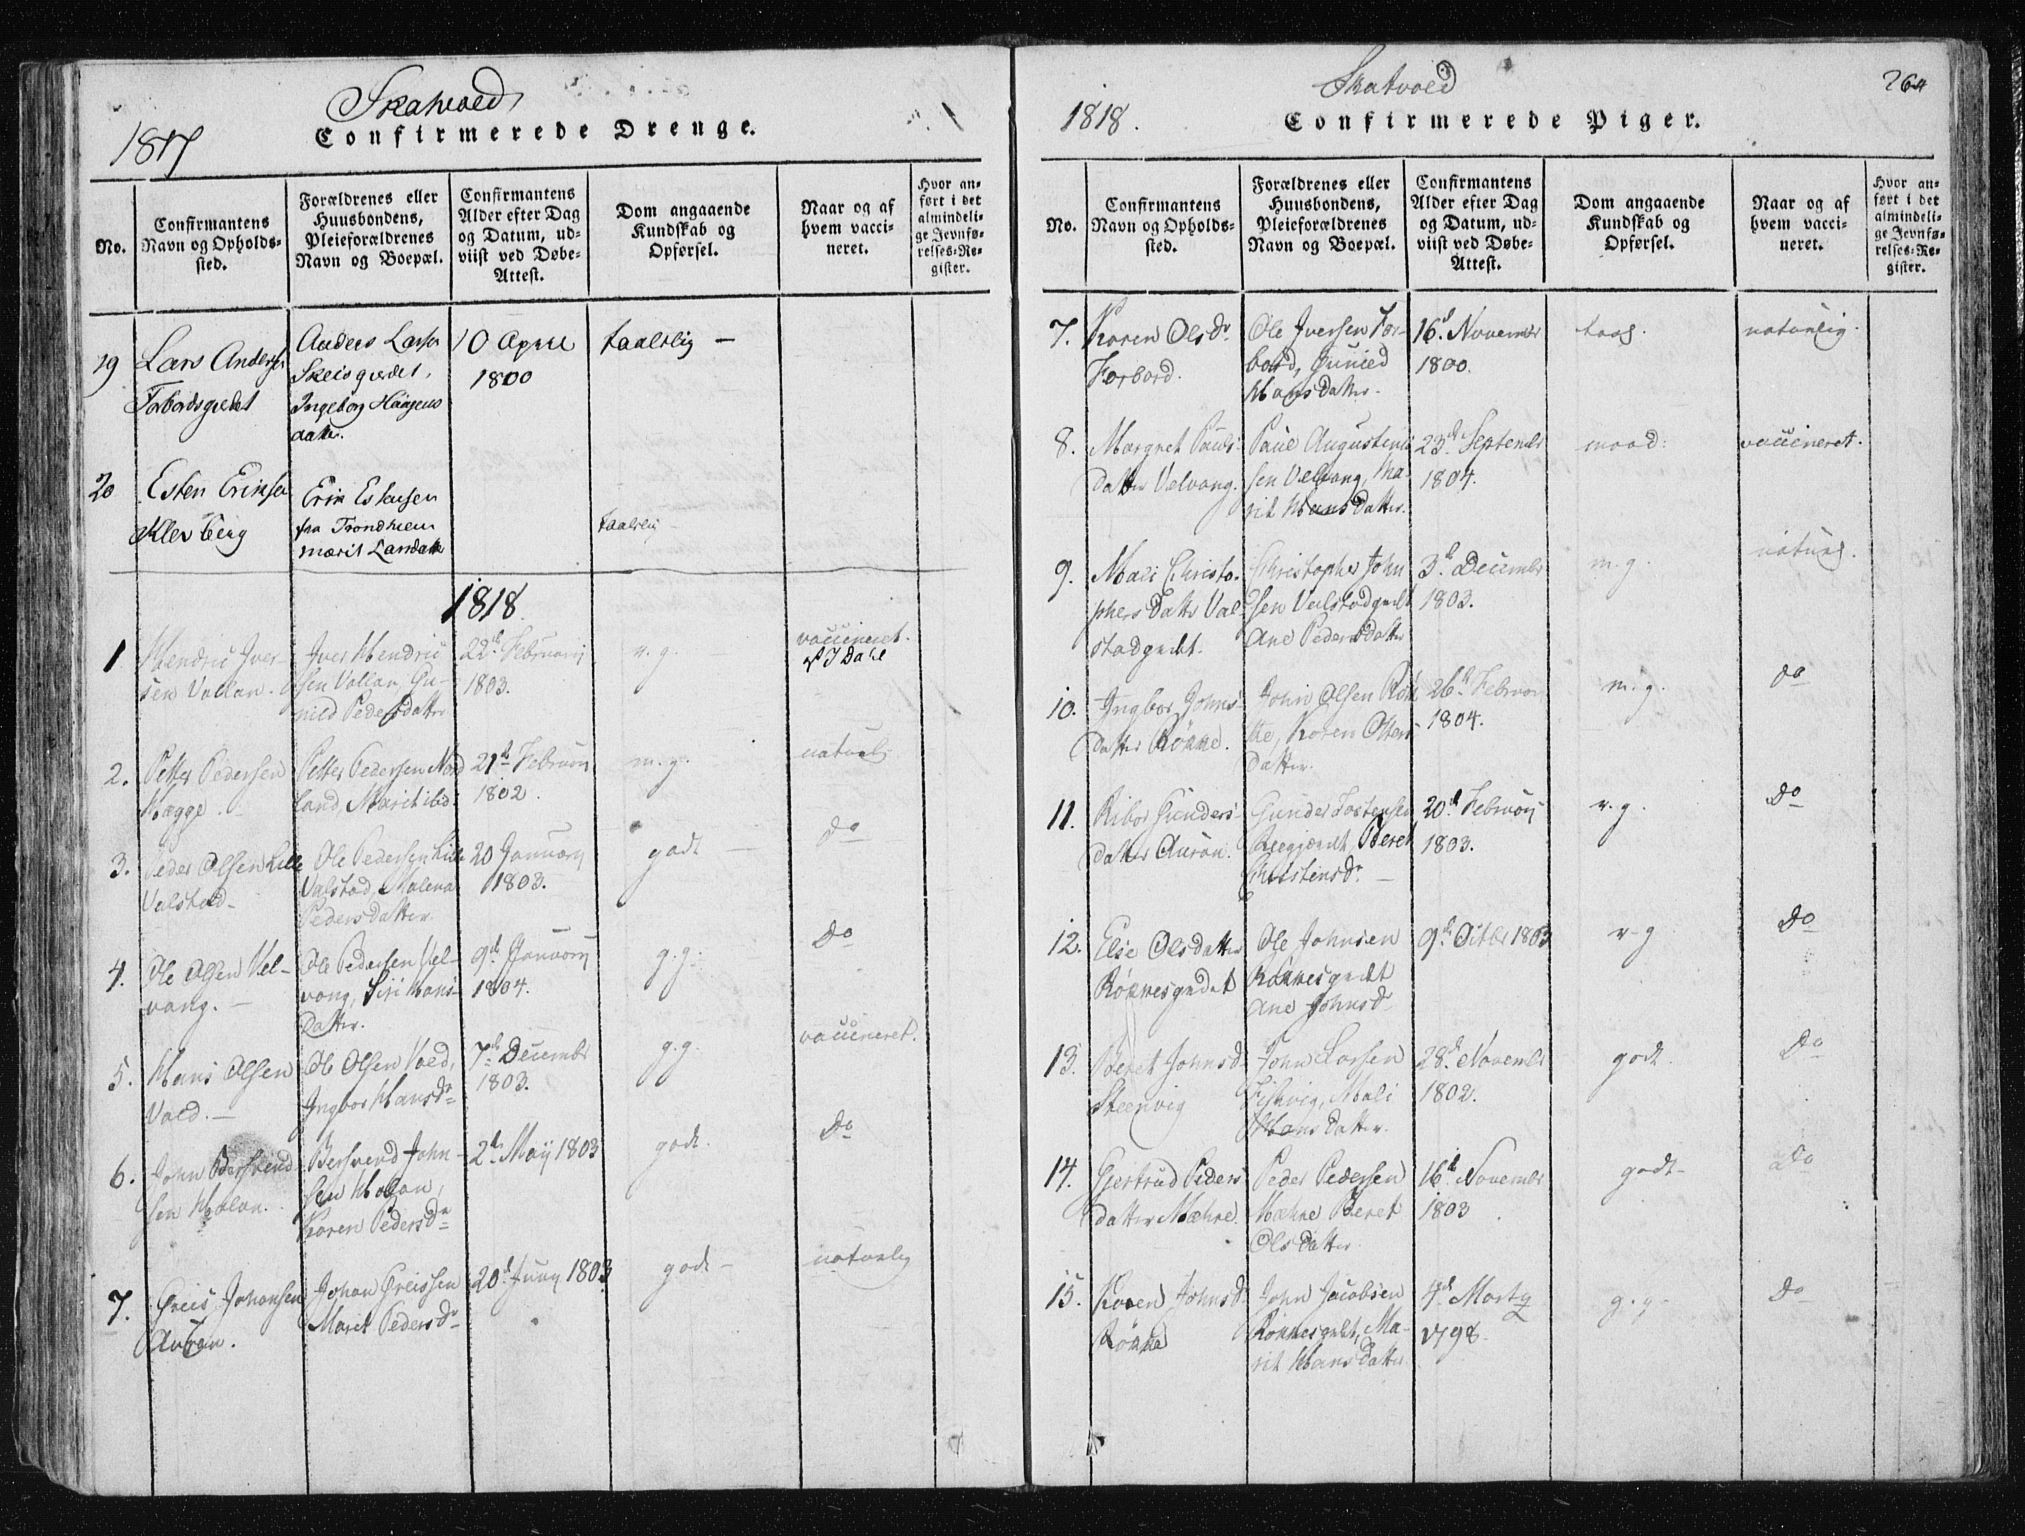 Skatvold
1817
Confirmerede Drenge.
No.
Confirmantens
Navn og Opholds-
sted.
Forældrenes eller
Huusbondens,
Pleieforældrenes
Navn og Boepæl.
Confirmantens
Alder efter Dag
og Datum, ud-
viist ved Døbe-
Attest.
Dom angaaende
Kundskab og
Opførsel.
Naar og af
hvem vacci-
neret.
Hvor an-
ført i det
almindeli-
ge Jevnfø-
relses-Re-
gister.
19
Lars Anders
Forbordsgiedet
Anders Larsen
Skeisgiedet,
Ingeborg Haagens
datter.
10 April
1800
taalelig —
20
Esten Erinsen
Klevberg
Erin Estensen
fra Trondhiem
Marit Larsdatter
taalelig —
1818.
1
Hendric Iver-
sen Vollan.
Iver Hendric
sen Vollan, Gu-
nild Pedersdatter
22d Februarij
1803.
v. g. —
vaccineret.
af I Dahl
2.
Petter Pedersen
Hægge.
Petter Pedersen Nord
land, Marit ibid:
21d Februarij
1802.
m. g.
naturl.
3.
Peder Olsen Lille
Valstad —
Ole Pedersen Lille
Valstad, Malena
Pedersdatter.
20 Januarij
1803.
godt —
Do
4.
Ole Olsen Vel-
vang. —
Ole Pedersen Vel-
vang, Siri Hans-
datter.
9d Januarij
1804.
g. g.
Do
5.
Hans Olsen
Vold. —
Ole Olsen Vold,
Ingbor Hansdr
7d December
1803.
g. g.
vaccineret.
6.
John Bersvend
sen Holan.
Bersvend John-
sen Holan,
Karen Pedersdr
2d Maij 1803
godt.
Do
7.
Greis Johansen
Auran.
Johan Greissen
Marit Pedersdr
20d Juny 1803
godt —
naturlig
Skatvold
264
1818.
Confirmerede Piger.
No.
Confirmantens
Navn og Opholds-
sted.
Forældrenes eller
Huusbondens,
Pleieforældrenes
Navn og Boepæl.
Confirmantens
Alder efter Dag
og Datum, ud-
viist ved Døbe-
Attest.
Dom angaaende
Kundskab og
Opførsel.
Naar og af
hvem vacci-
neret.
Hvor an-
ført i det
almindeli-
ge Jevnfø-
relses-Re-
gister.
7.
Karen Olsdr
Forbord.
Ole Iversen For-
bord, Gunild
Hansdatter.
16d November
1800.
taal.
naturlig.
8.
Margret Pauls-
datter Velvang.
Paul Augustinu
sen Velvang, Ma-
rit Hansdatter.
23d September
1804.
maad:
vaccineret.
9.
Mali Christo-
phersdatter Val-
stadgiedt.
Christopher John
sen Valstadgiedt
Ane Pedersdatter
3d December
1803.
m. g.
naturl.
10.
Ingbor Johns-
datter Røkke.
John Olsen Røk
ke, Karen Olsens
datter.
26d Februar
1804.
m. g.
do
11.
Ribor Gunders-
datter Auran.
Gunder Tostensen
Beret
Christensdr. —
20d Februarij
1803.
v. g.
Do
12.
Else Olsdatter
Røkkesgiedet
Ole Johnsen
Røkkesgiedt
Ane Johnsdr
9d Octbr 1803
v. g
Do
13.
Beret Johnsd
Steenvig
John Larsen
Fiskvig, Mali
Hansdatter.
28d November
1802.
godt.
Do
14.
Gjertrud Peders
datter Mæhre.
Peder Pedersen
Mæhre Beret
Olsdatter
16d November
1803
godt —
Do
15.
Karen Johnsd
Røkke
John Jacobsen
Røkkesgiedt, Ma-
rit Hansdatter
4d Marty
1798.
g. g.
Do